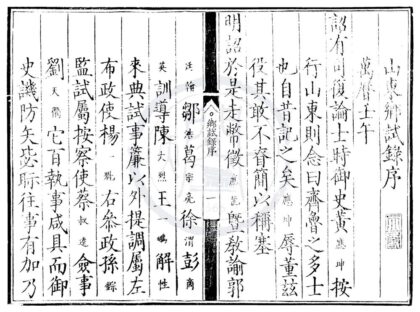 山東鄉試錄序
萬曆壬午
詔有司復論士時御史黃應坤按
行山東則念曰齊魯之多士
也自昔記之矣應坤辱董茲
役其敢不眘簡以稱塞
明詔於是走幣徵應芭暨教諭郭
鄉試錄序
一
鄒葛徐渭彭商
英訓導陳大烈王鳴解性
來典試事簾以外提調屬左
布政使楊右參政孫鑛
監試屬按察使蔡叔逵僉事
劉它百執事咸具而御
史譏防矢毖眎往事有加乃